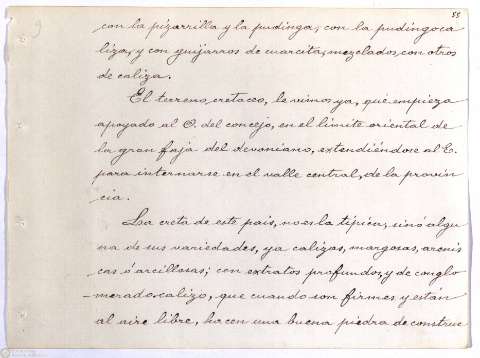 88
con la pizarrilla y la pudinga, con la pudingoca
liza, y con guijarros de cuarcita, mezclados, con otros
de caliza.
El terreno, cretaceo, le vimos ya, que empieza
apoyado al O. del concejo, en el límite oriental de
la gran faja del devoniano, extendiéndose al E.
para internarse en el valle central, de la provin
cia.
La creta de este pais, no es la típica; sinó algu
na de sus variedades, ya calizas, margosas, arenis
cas ó arcillosas; con extratos profundos, y de conglo
merado calizo, que cuando son firmes y están
al aire libre, hacen una buena piedra de construc